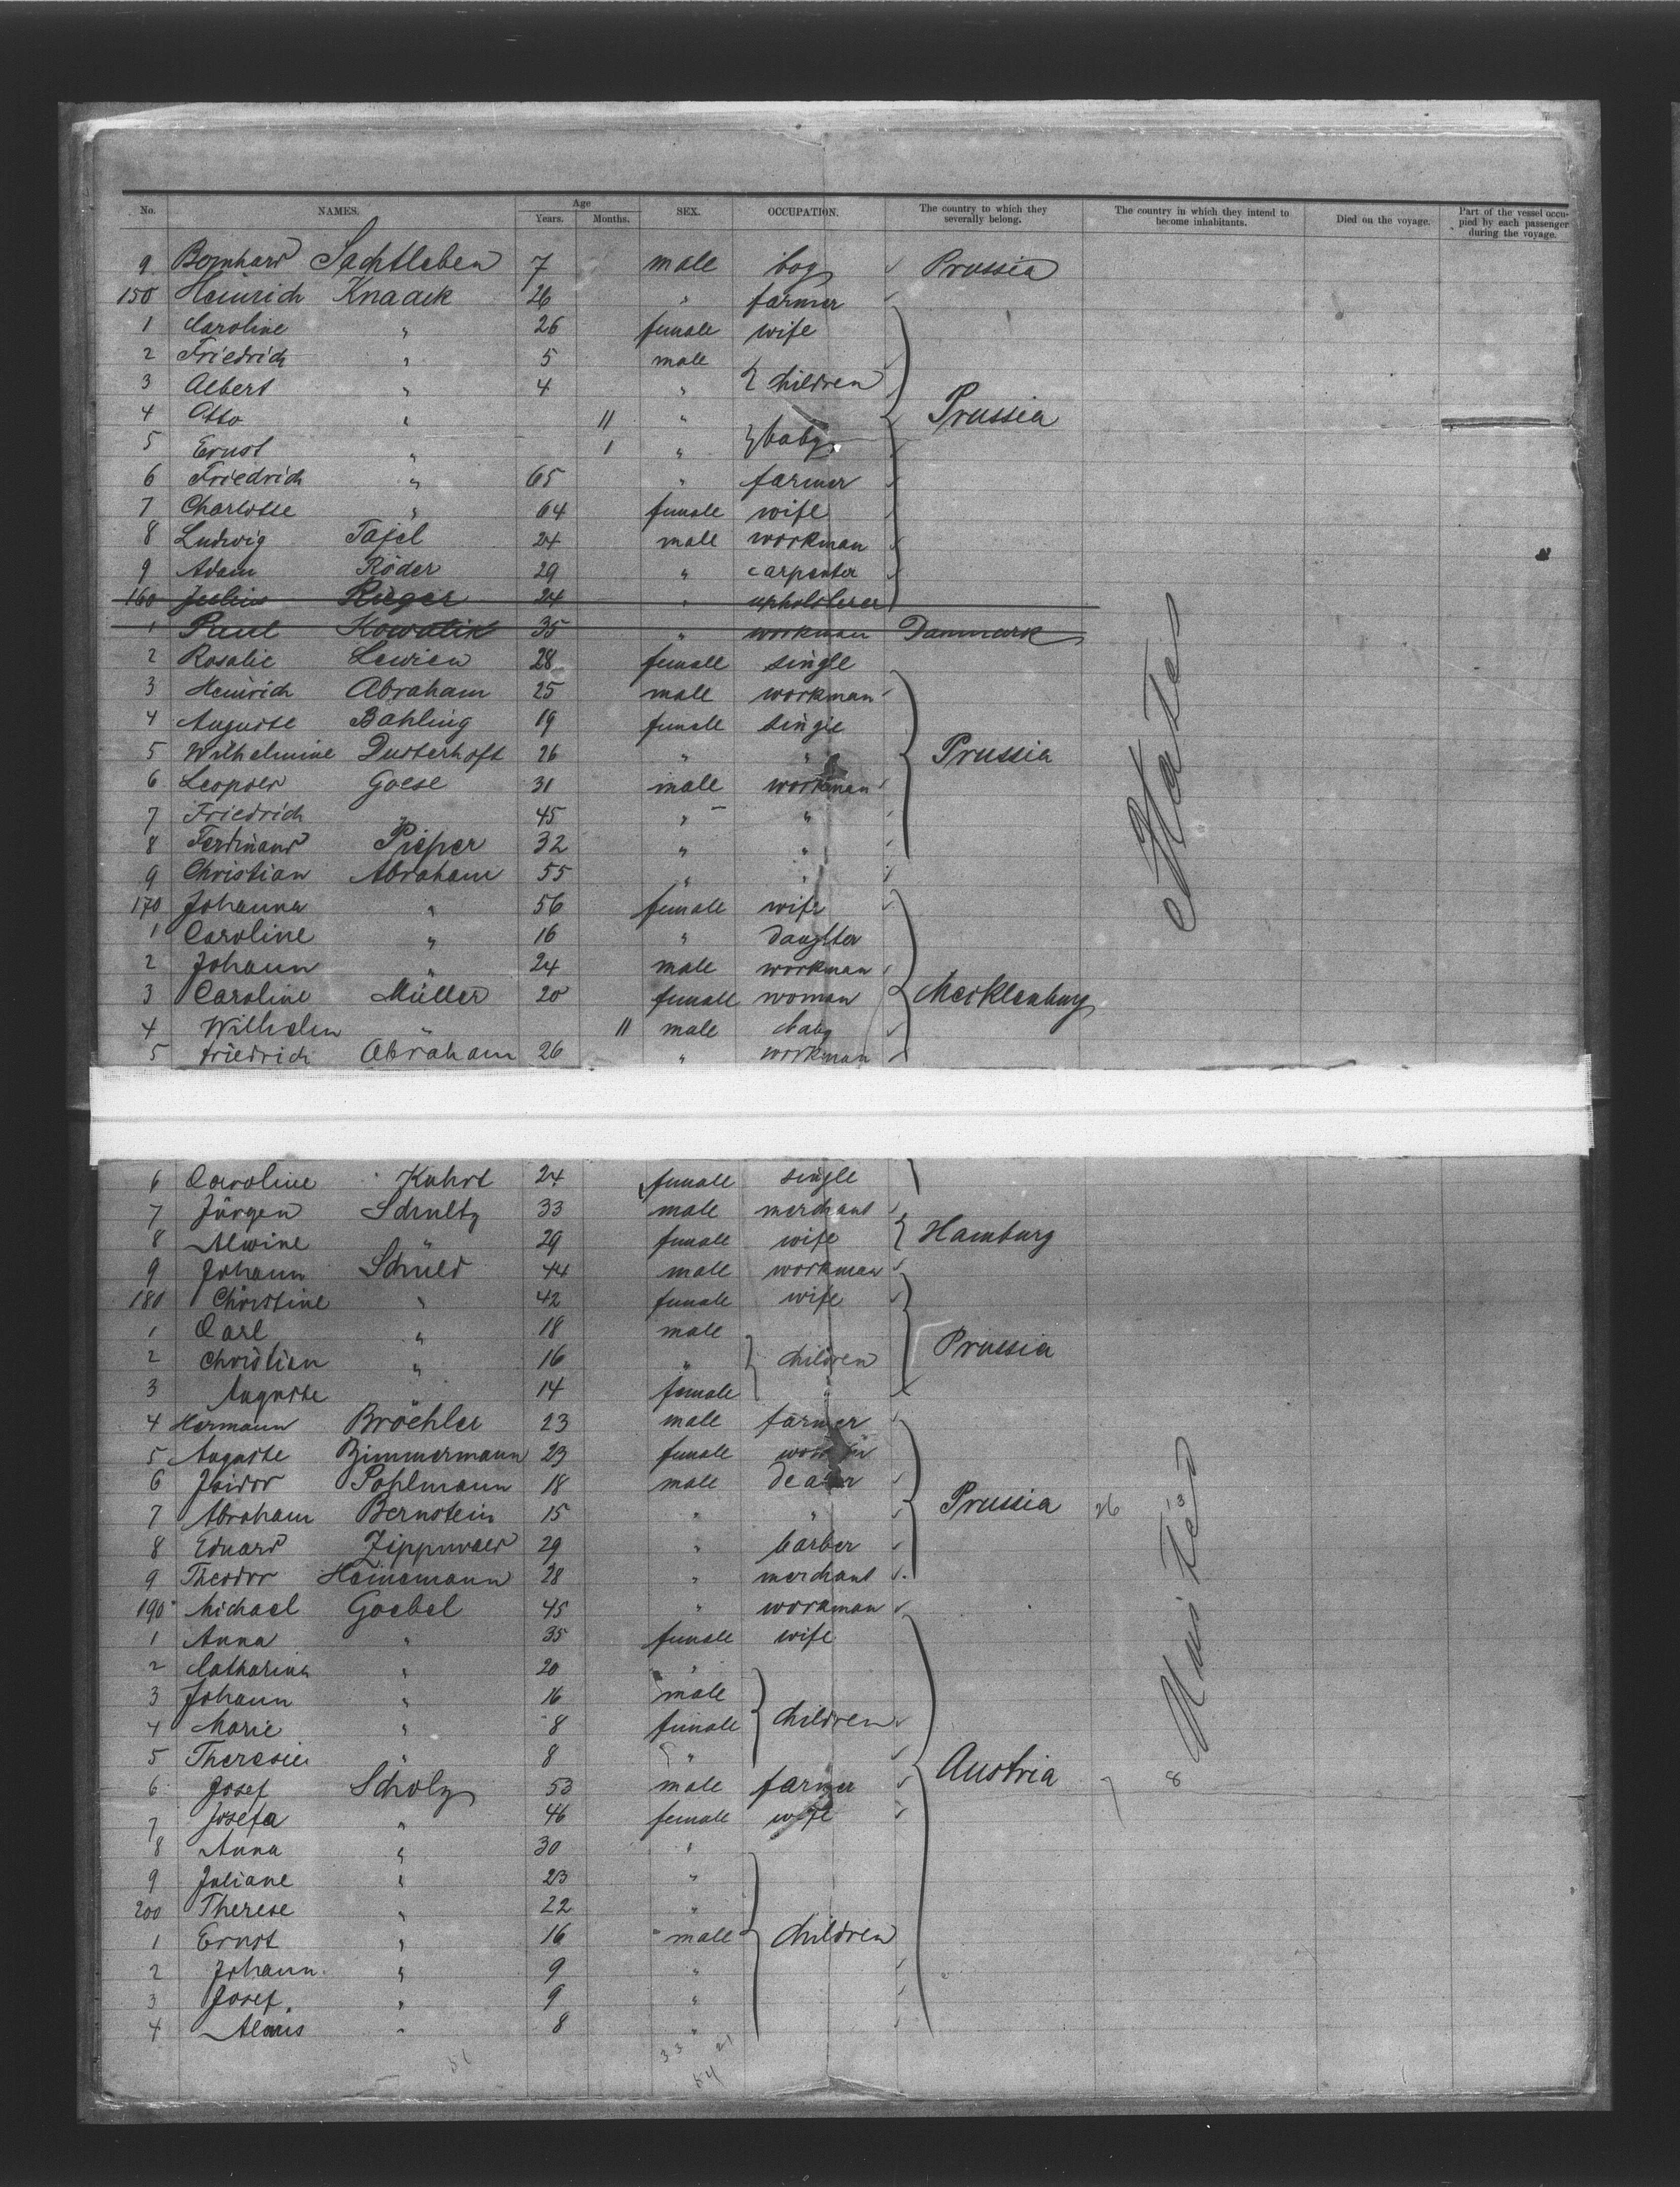 No. NAMES. Age Years. Months. SEX. OCCUPATION. The country to which they severally belong. The country in which they intend to become inhabitants. Died on the voyage. Part of the vessel occupied by each passenger during the voyage.
9 Bernhard Sachtleben 7 male boy Prussia
150 Heinrich Knaack 26 " farmer
1 Caroline " 26 female wife
2 Friedrich " 5 male
3 Albert " 4 " } children
4 Otto " 11 " Prussia
5 Ernst " 1 " } baby
6 Friedrich " 65 " farmer
7 Charlotte " 64 female wife
8 Ludwig Tajel 24 male workman
9 Adam Röder 29 " carpenter
160 Julius Rieger 24 " upholsterer
1 Paul Kowalik 35 " workman Danmark
2 Rosalie Lewien 28 female single
3 Heinrich Abraham 25 male workman
4 Auguste Bahling 19 female single
5 Wilhelmine Dusterhoft 26 " " Prussia
6 Leopold Goese 31 male workman
7 Friedrich " 45 " "
8 Ferdinand Pieper 32 " "
9 Christian Abraham 55 " "
170 Johanna " 56 female wife
1 Caroline " 16 " daughter
2 Johann " 24 male workman
3 Caroline Müller 20 female woman Mecklenburg
4 Wilhelm " 11 male baby
5 Friedrich Abraham 26 " workman
6 Caroline Kuhrt 24 female single
7 Jürgen Schultz 33 male merchant
8 Alwine " 29 female wife Hamburg
9 Johann Schuld 44 male workman
180 Christine " 42 female wife
1 Carl " 18 male
2 Christian " 16 " children Prussia
3 Auguste " 14 female "
4 Hermann Bröchler 23 male farmer
5 Auguste Zimmermann 23 female
6 Isidor Pohlmann 18 male dealer
7 Abraham Bernstein 15 " " Prussia 26
8 Eduard Zippwald 29 " barber
9 Theodor Heinemann 28 " merchant
190 Michael Goebel 45 " workman
1 Anna " 35 female wife
2 Catharina " 20 "
3 Johann " 16 male
4 Marie " 8 female children
5 Theresie " 8 " Austria
6 Josef Scholz 53 male farmer 8
7 Josefa " 46 female wife
8 Anna " 30 "
9 Juliane " 23 "
200 Therese " 22 "
1 Ernst " 16 male children
2 Johann " 9 "
3 Josef " 9 "
4 Alouis " 8 "
33 21
54
United States